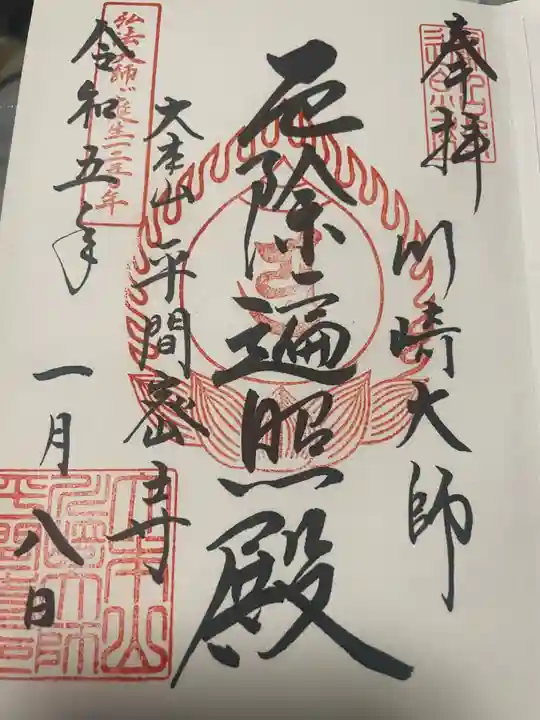 奉拝
川崎大師
厄除遍照殿
大本山平間密寺
弘法大師ご誕生一二五〇年
令和五年
一月八日